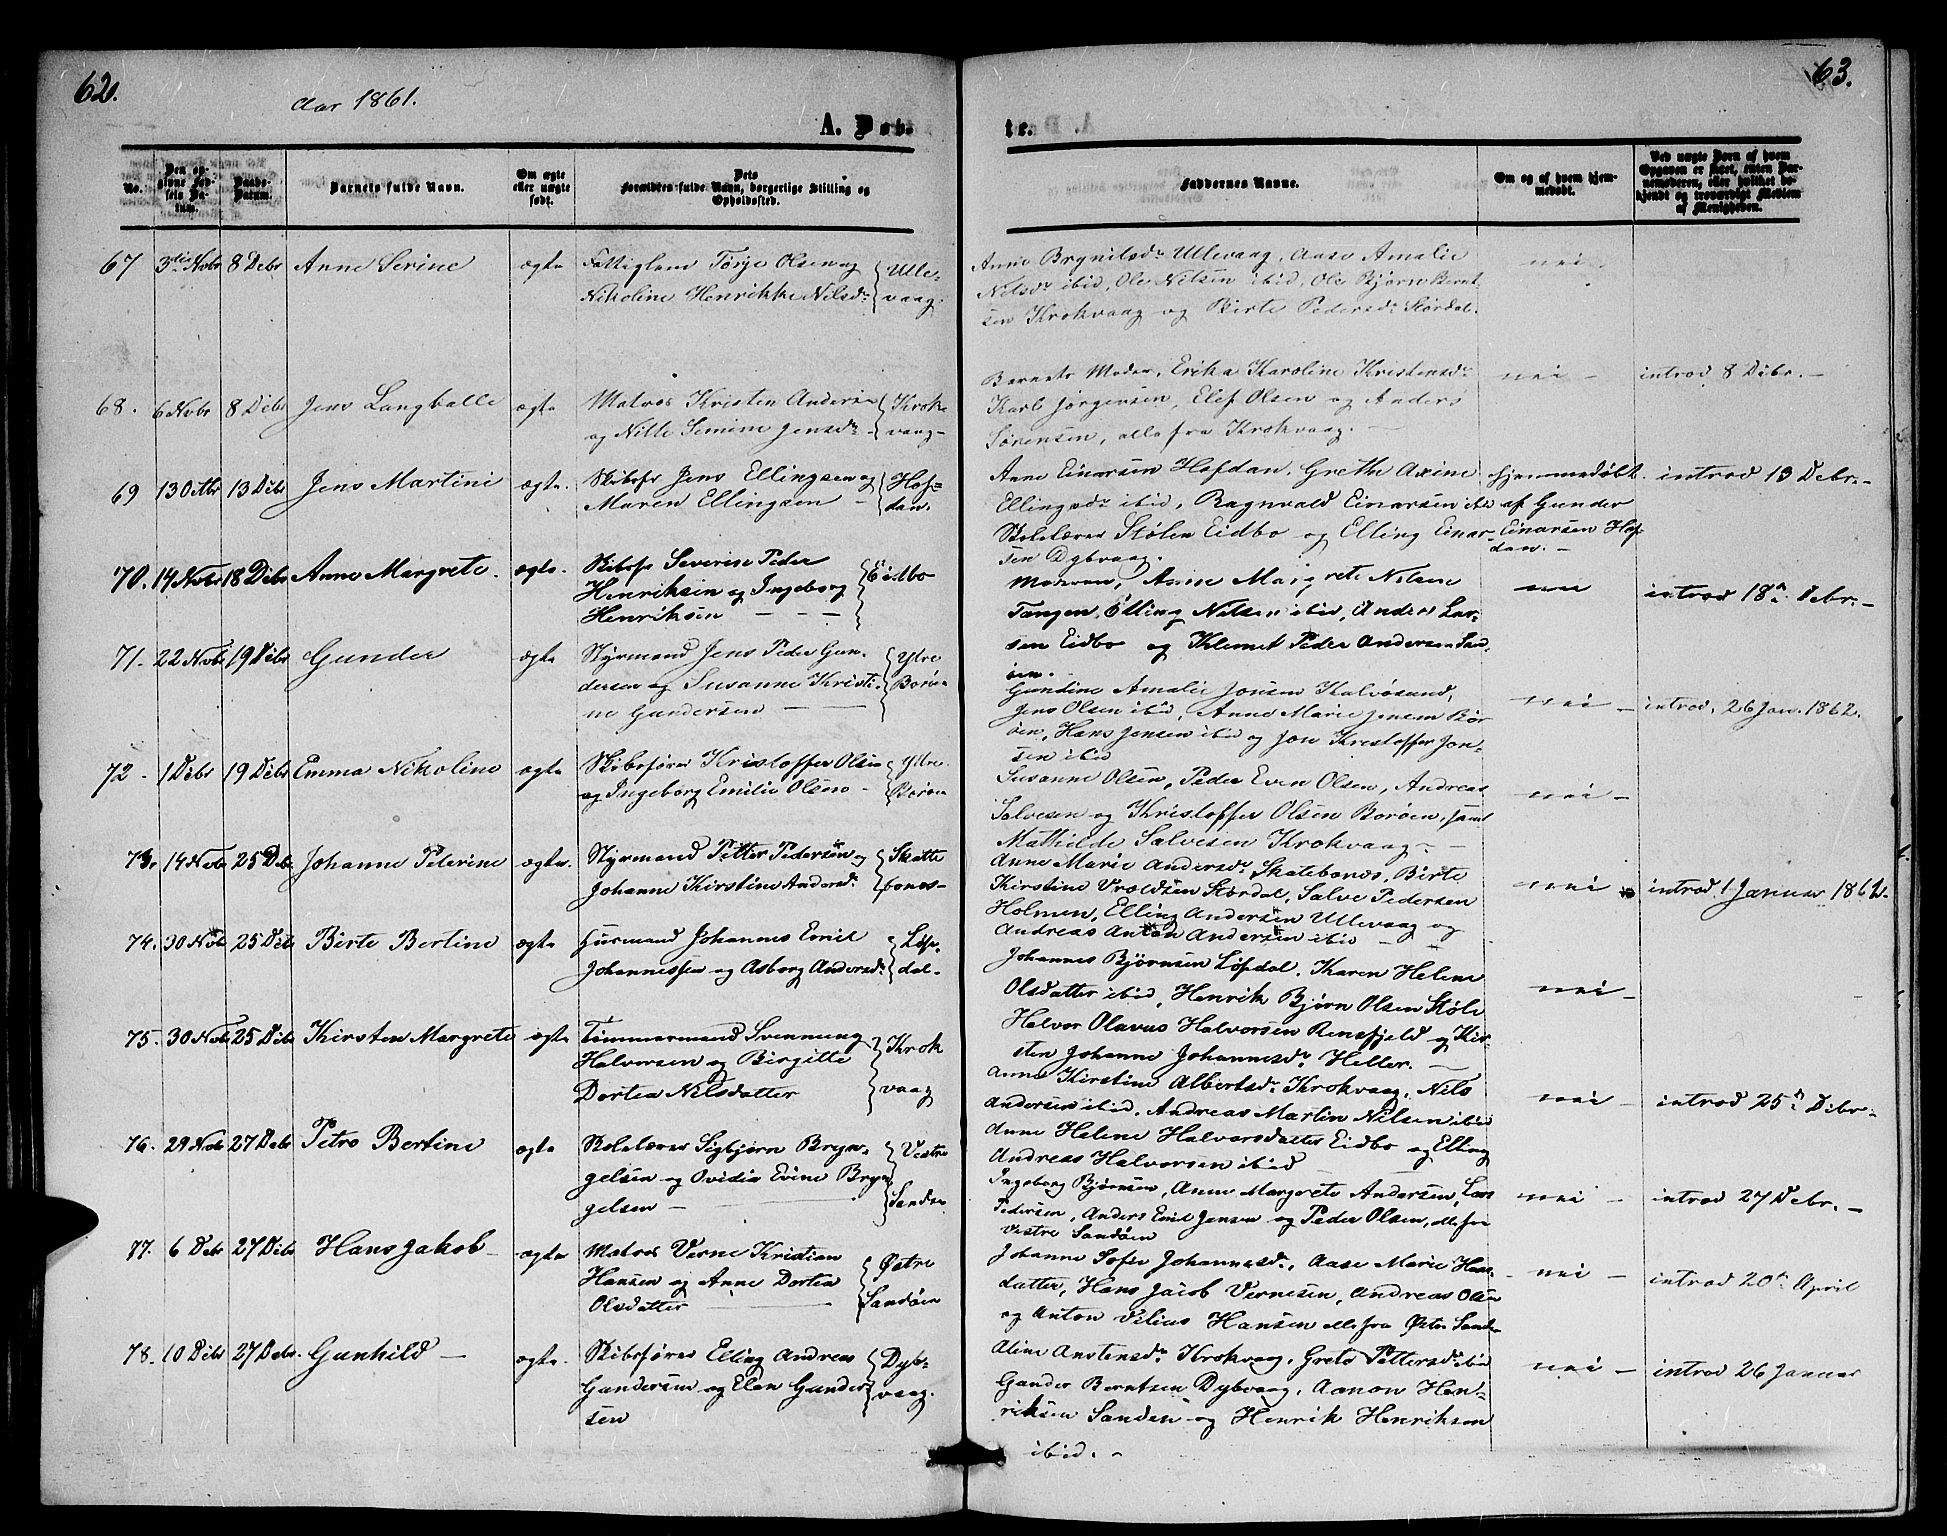 62.
Aar 1861.
A. Døb-
No.
Den opgivne Fødsels Datum.
Daabs-Datum.
Barnets fulde Navn.
Om ægte eller uægte født.
Dets Forældres fulde Navn, borgerlige Stilling og Opholdssted.
67 3die Novbr 8 Debr Anne Serine ægte Fattiglem Törje Olsen og Ulle-
Nikoline Henrikke Nilsdr vaag.
68. 6 Novbr 8 Debr Jens Langballe ægte Matros Kristen Anders Krok
og Nille Semine Jensdr vaag-
69 13 13 Debr Jens Martini ægte. Skibsfr Jens Ellingsen og Hof-
Maren Ellingsen dan.
70. 14 Novbr 18 Debr Anne Margrete. ægte. Skibsfr Severin Peder Eidbo
Henriksen og Ingeborg
Henriksen
71. 22 Novbr 19 Debr Gunder ægte Styrmand Jens Peder Gun- Ytre
dersen og Susanne Kristi- Borøen
ne Gundersen
72 1 Debr 19 Debr Emma Nikoline ægte Skibsfører Kristoffer Olsen Ytre
og Ingeborg Emilie Olsen Borøen
73. 14 Novbr 25 Debr Johanne Peterine ægte. Styrmand Petter Pedersen og Skatte
Johanne Kirstine Andersdr bones-
74. 30 Novbr 25 Debr Birte Bertine ægte Huusmand Johannes Emil Løv-
Johannessen og Asborg Andersdr dal-
75. 30 Novbr 25 Debr Kirsten Margrete ægte Tømmermand Svennung Krok
Halvorsen og Birgitte vaag
Dortea Nilsdatter
76. 29 Novbr 27 Debr Petro Bertine ægte Skolelærer Sigbjørn Bryn- Vestre
gelsen og Ovidia Evine Bryn Sandøen
gelsen
77. 6 Debr 27 Debr Hans Jakob ægte Matros Verne Kristian Østre
Hansen og Anne Dortea Sandøen
Olsdatter
78. 10 Debr 27 Debr. Gunhild ægte. Skibsfører Elling Andreas Dyb-
Gundersen og Elen Gunder vaag.
sen
63.
te.
Faddernes Navne.
Om og af hvem hjemmedøbt.
Ved uægte Børn af hvem Opgaven er skeet, enten Barnemoderen, eller hvilket bekjendt og troværdigt Medlem af Menigheden.
Anne Brynildsdr Ullevaag, Aase Amalie nei.
Nilsdr ibid, Ole Nilsen ibid, Ole Bjørn Bernt
sen Krokvaag og Birte Pedersdr Stördal.
Barnets Moder, Erika Karoline Kristensdr nei - introd 8 Debr. -
Karl Jörgensen, Elef Olsen og Anders
Sørensen, alle fra Krokvaag. -
Anne Einarsen Hofdan, Grethe Axine hjemmedøbt introd 13 Debr. -
Ellingsdr ibid, Ragnvald Einarsen ibid af Gunder
Skolelærer Stølen Eidbo og Elling Einar- Einarsen Hof
sen Dybvaag. dan. -
Moderen, Anne Margrete Nilsen introd 18de Debr. -
Tangen, Elling Nilsen ibid, Anders Lar-
sen Eidbo og Klemet Peder Andersen Sand
øen.
Gundine Amalie Jonsen Kalvøsund, nei - introd, 26 Jan. 1862.
Jens Olsen ibid, Anne Marie Jensen Bor-
øen, Hans Jensen ibid og Jon Kristoffer Jon-
sen ibid
Susanne Olsen, Peder Even Olsen, Andreas nei -
Salvesen og Kristoffer Olsen Borøen, samt
Mathilde Salvesen Krokvaag. -
Anne Marie Andersdr Skatebones, Birte nei introd 1 Januar 1862.
Kirstine Vroldsen Stördal, Salve Pedersen
Holmen, Elling Andersen Ullevaag og
Andreas Anton Andersen ibid
Johannes Bjørnsen Løfdal, Karen Helene nei -
Olsdatter ibid, Henrik Bjørn Olsen Støle
Halvor Olavus Halvorsen Rensfjeld og Kir-
sten Johanne Johannesdr Heller. -
Anne Kirstine Albertsdr Krokvaag, Nils nei introd 25de Debr.
Andersen ibid, Andreas Martin Nilsen ibid
Anne Helene Halvorsdatter Eidbo og Elling
Andreas Halvorsen ibid
Ingeborg Bjørnsen, Anne Margrete Andersen, Lars nei - introd 27 Debr. -
Pedersen, Anders Emil Jensen og Peder Olsen, alle fra
Vestre Sandøen
Johanne Sofie Johannesdr, Aase Marie Hans- nei - introd 20de April
datter, Hans Jacob Vernesen, Andreas Olsen
og Anton Vilius Hansen alle fra Østre Sandø
Aline Anstensdr Krokvaag, Grete Pettersdr ibid nei - introd 26 Januar
Gunder Berntsen Dybvaag, Aanon Hen-
riksen Sanden og Henrik Henriksen
ibid. -